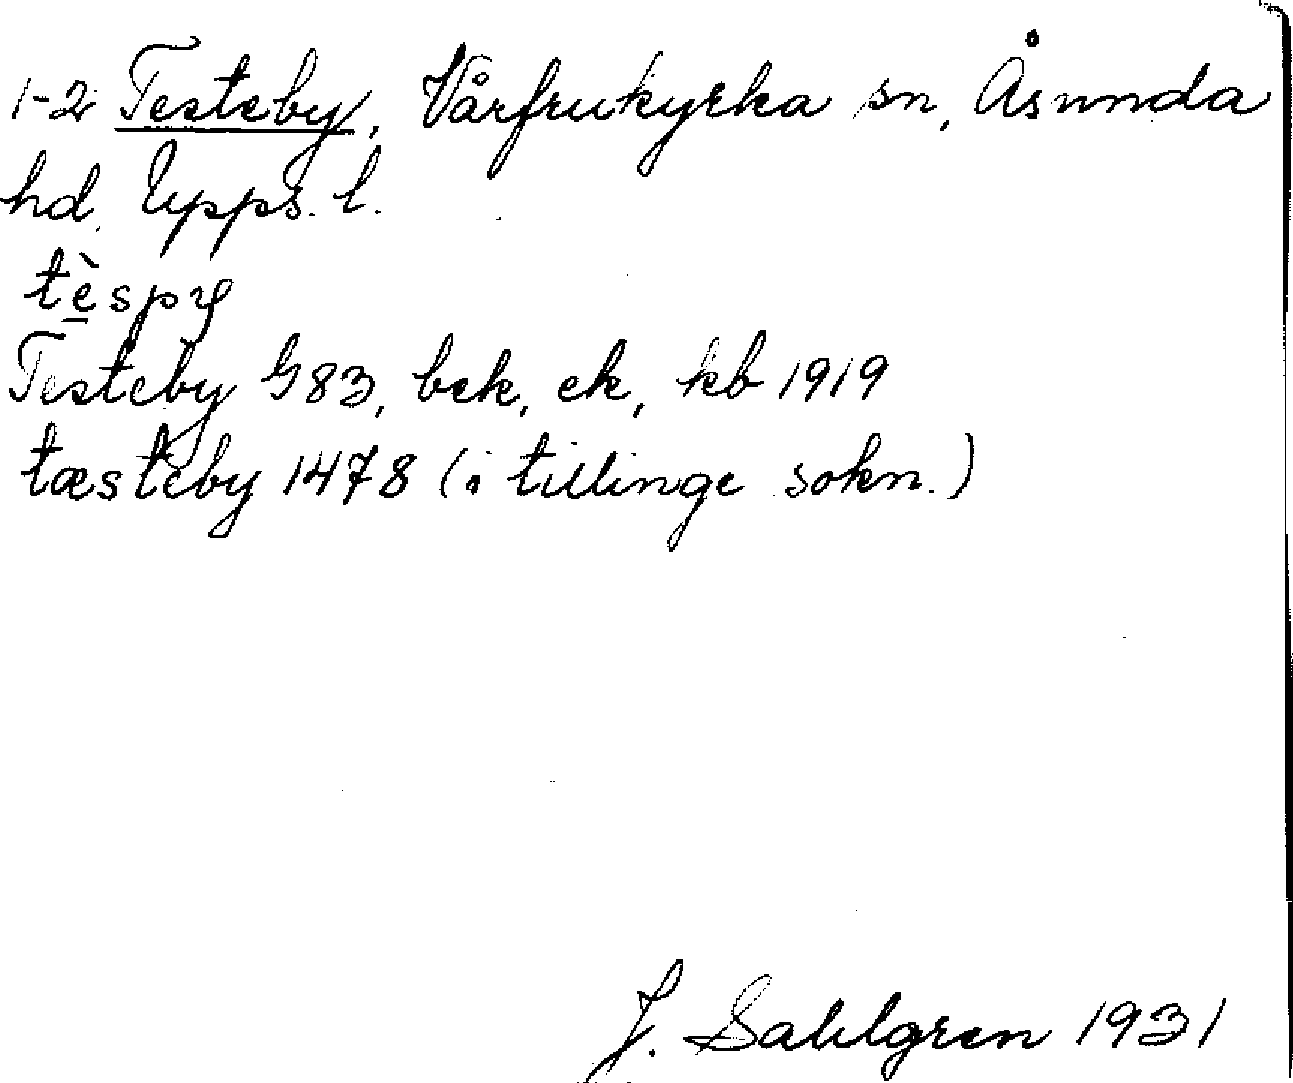 1-2 Testeby, Vårfrukyrka sn, Åsunda
hd. Upps. l.
tèspy
Testeby G83, bek, ek, kb 1919
tæsteby 1478 (i tillinge sokn.)
J. Sahlgren 1931